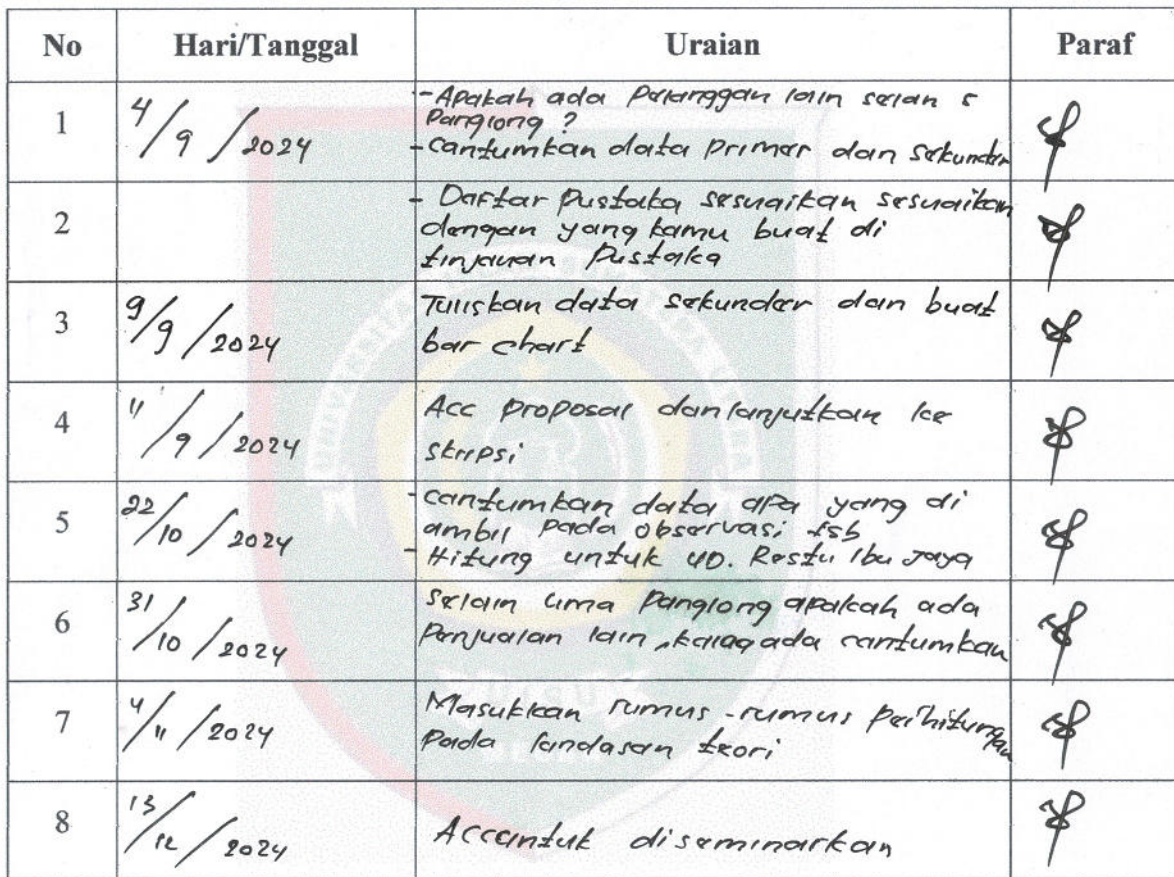 No Hari/Tanggal Uraian Paraf
1 4/9/2024 - Apakah ada pelanggan lain selain 5
Panglong ?
- cantumkan data primer dan sekunder
2 - Daftar Pustaka sesuaikan sesuaikan
dengan yang kamu buat di
tinjauan Pustaka
3 9/9/2024 Tuliskan data sekunder dan buat
bar chart
4 11/9/2024 Acc proposal dan lanjutkan ke
skripsi
5 22/10/2024 - cantumkan data apa yang di
ambil pada observasi tsb
- Hitung untuk UD. Restu Ibu Jaya
6 31/10/2024 selain lima Panglong apakah ada
Penjualan lain, kalau ada cantumkan
7 4/11/2024 Masukkan rumus-rumus perhitungan
pada landasan teori
8 13/12/2024 Acc untuk diseminarkan